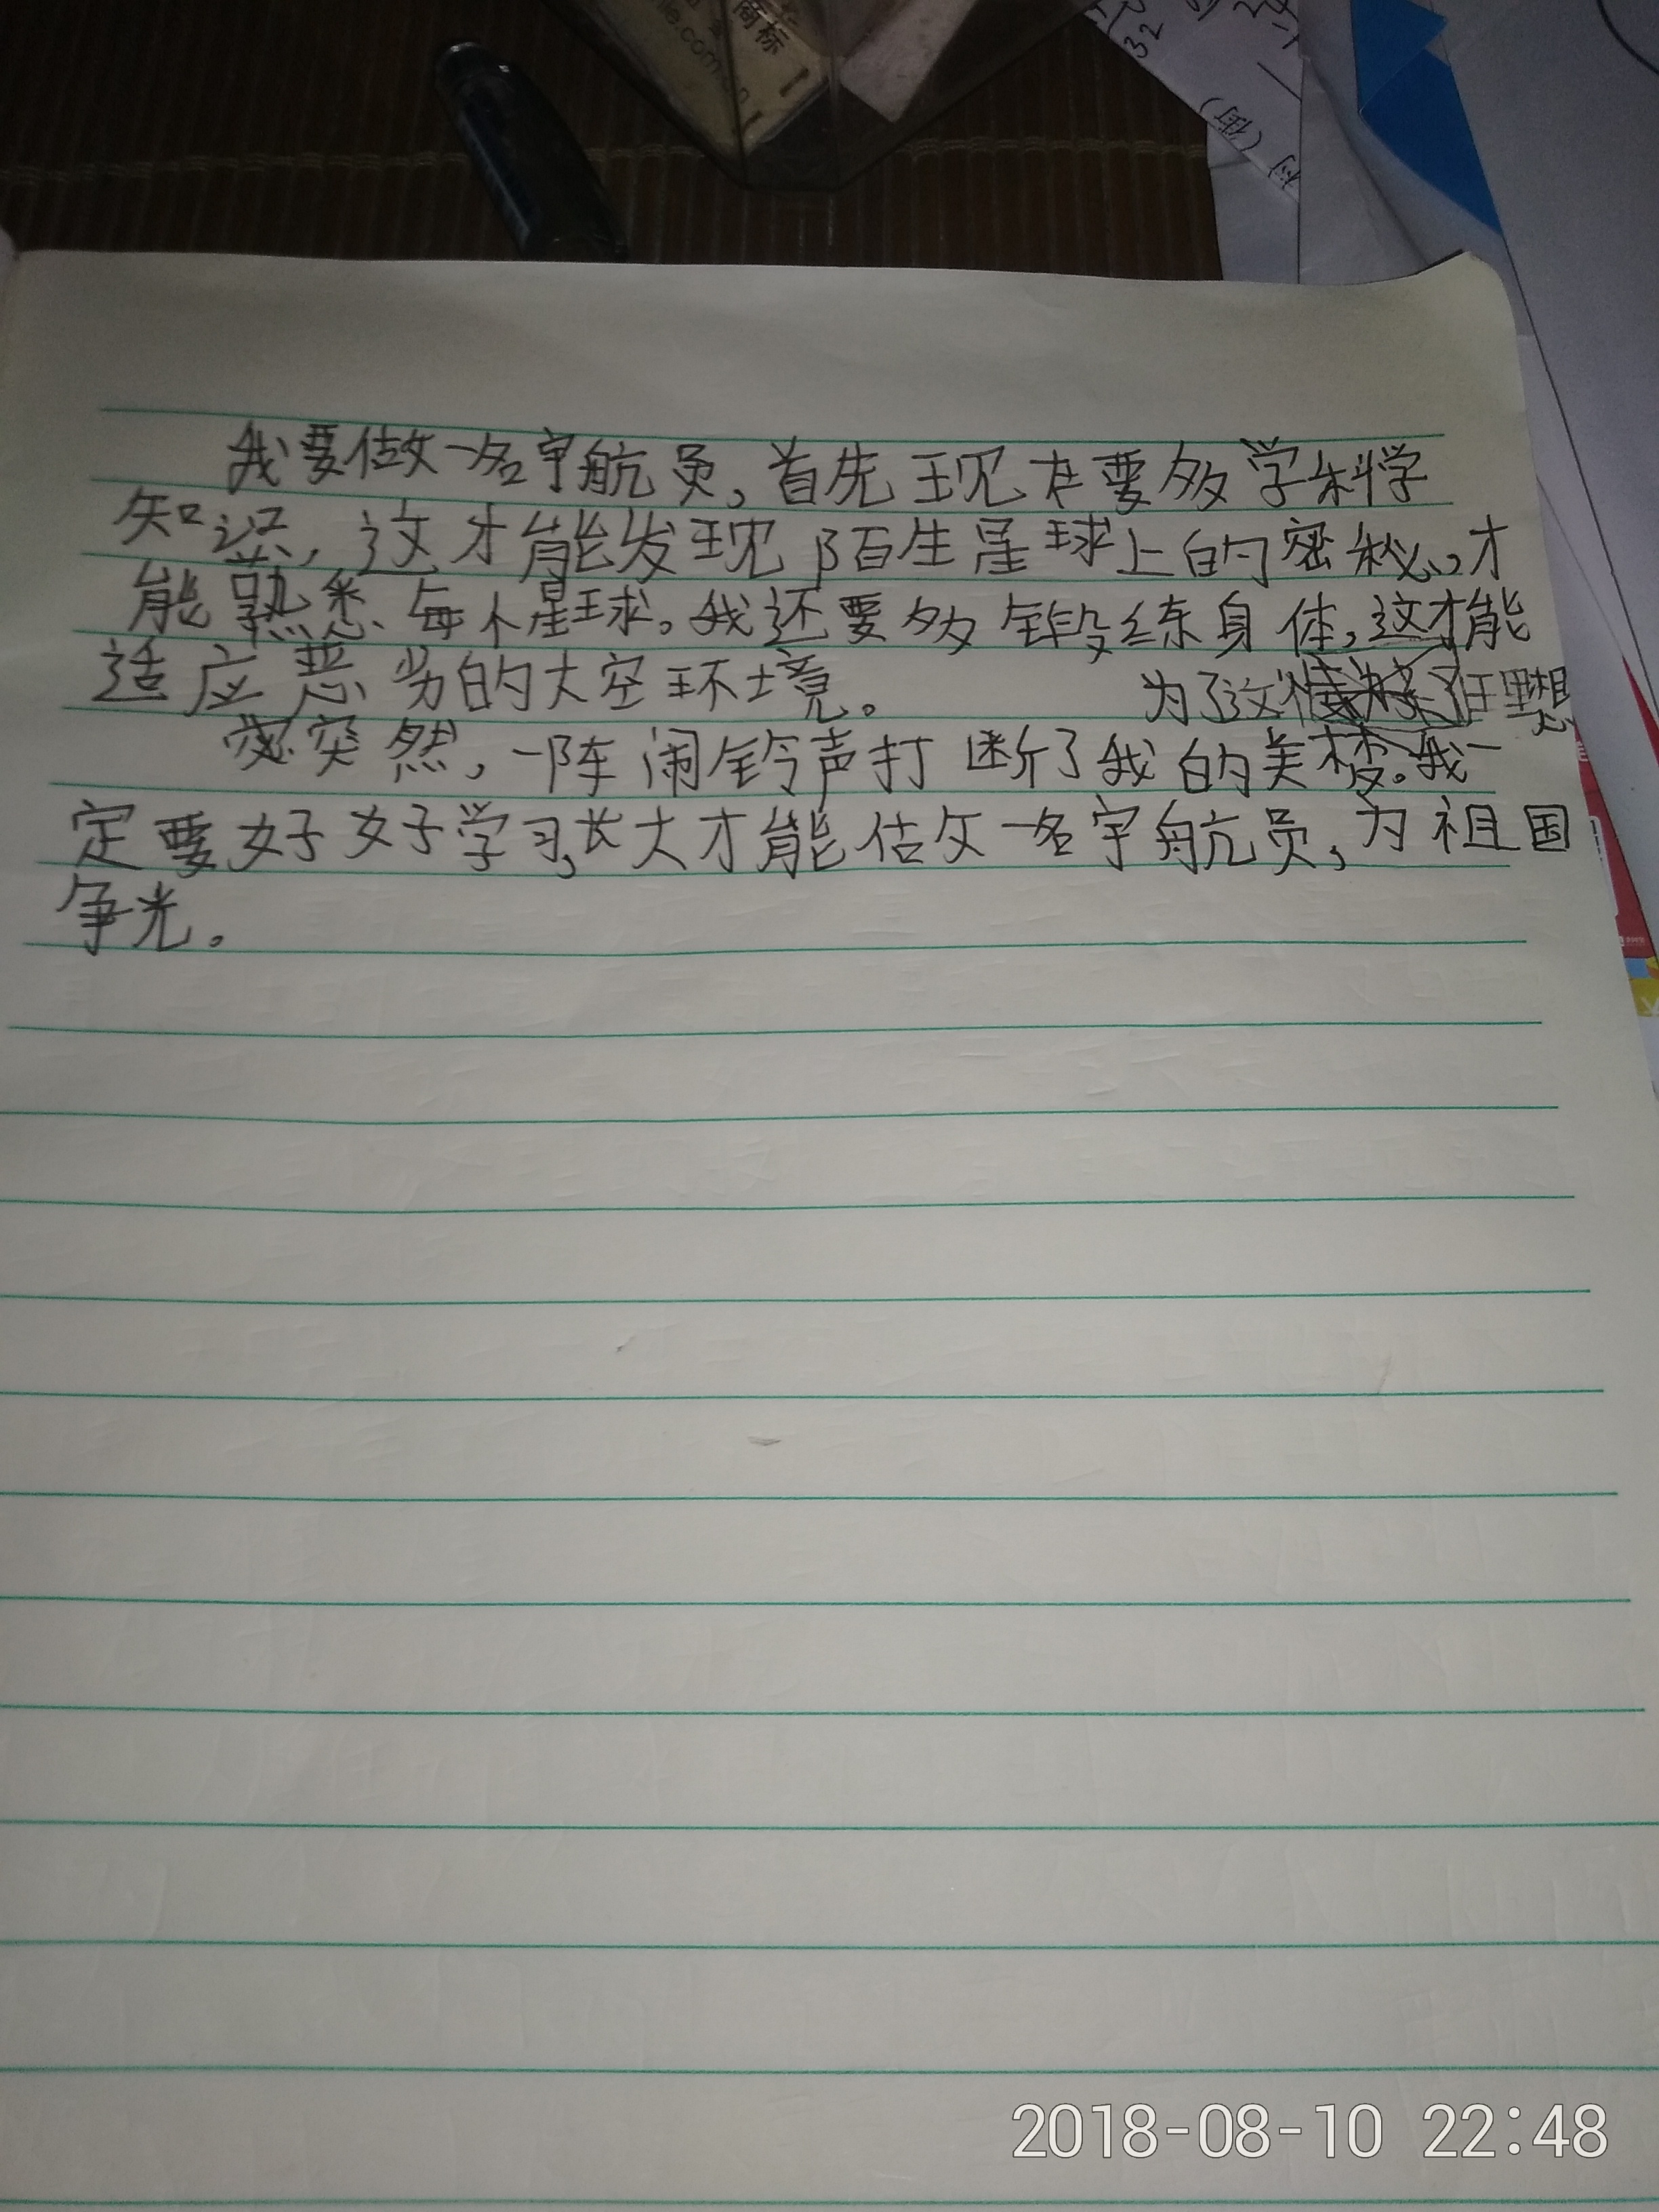 商标
32
(街)
我要做一名宇航员,首先现在要多学科学
知识,这才能发现陌生星球上的密秘,才
能熟悉每个星球。我还要多锻练身体,这才能
适应恶劣的太空环境。
为了这个理想
突然,一阵闹铃声打断了我的美梦。我一
定要好好学习,长大才能做一名宇航员,为祖国
争光。
2018-08-10 22:48